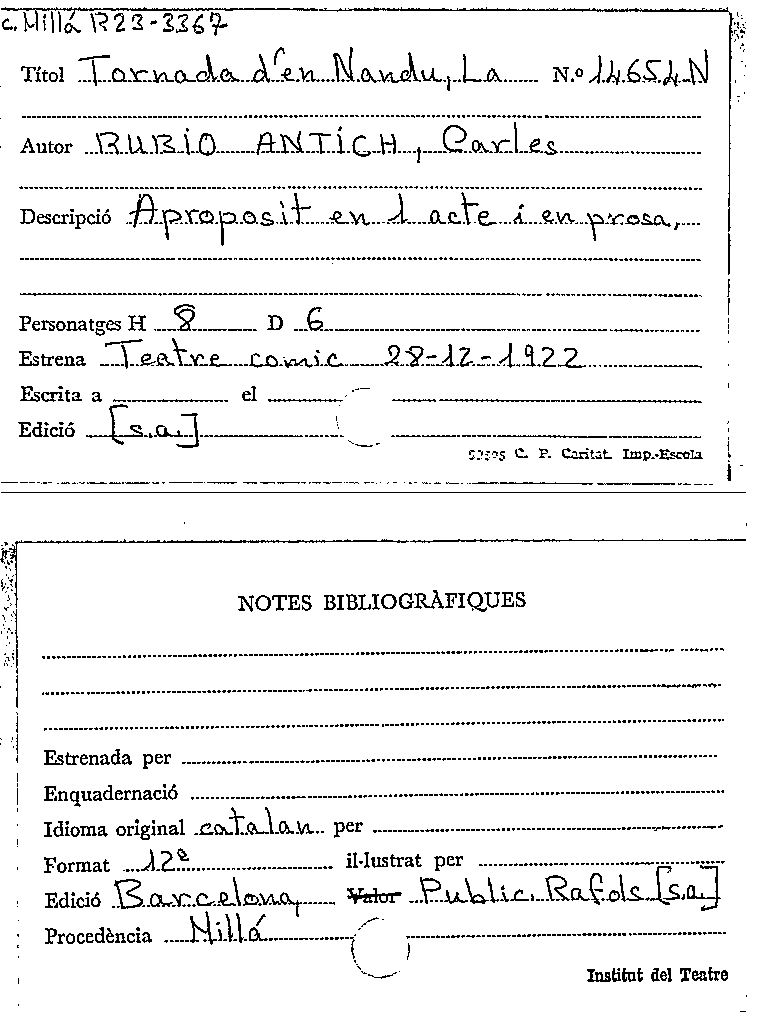 c. Millá R23-3367
Títol Tornada d'en Nandu, La N.º 14654-N
Autor RUBIO ANTICH, Carles
Descripció Aproposit en 1 acte i en prosa,
Personatges H 8 D 6
Estrena Teatre comic 28-12-1922
Escrita a el
Edició [s.a.]
C. P. Caritat. Imp.-Escola
NOTES BIBLIOGRÀFIQUES
Estrenada per
Enquadernació
Idioma original catalan per
Format 12º il·lustrat per
Edició Barcelona, Valor Public. Rafols [s.a.]
Procedència Millá
Institut del Teatre